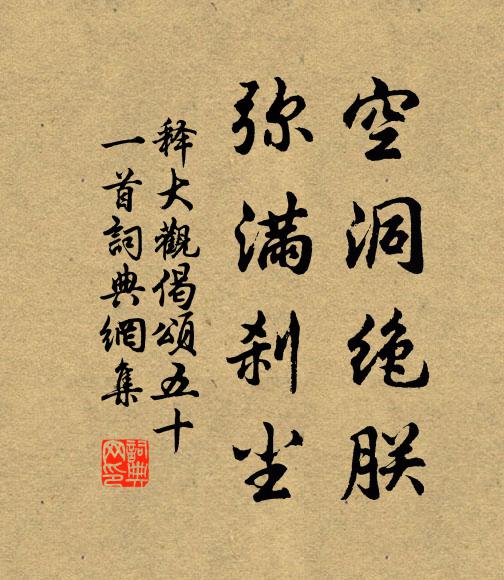 空洞绝朕
弥满刹尘
释大觀偈頌五十
一首詞典網集
詞典網印